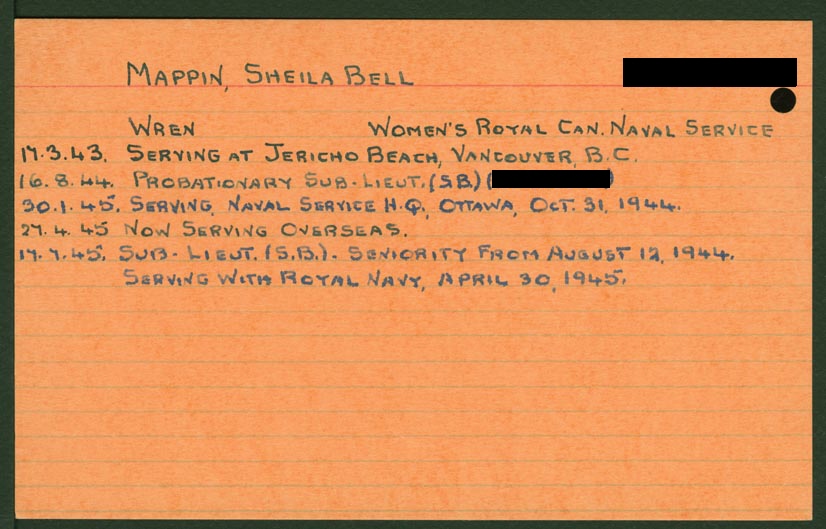 MAPPIN, SHEILA BELL
WREN WOMEN'S ROYAL CAN. NAVAL SERVICE
17.3.43. SERVING AT JERICHO BEACH, VANCOUVER, B.C.
16.8.44. PROBATIONARY SUB-LIEUT. (S.B.) ( )
30.1.45. SERVING, NAVAL SERVICE H.Q., OTTAWA, OCT. 31, 1944.
27.4.45 NOW SERVING OVERSEAS.
17.7.45. SUB-LIEUT. (S.B.). SENIORITY FROM AUGUST 12, 1944.
SERVING WITH ROYAL NAVY, APRIL 30, 1945.